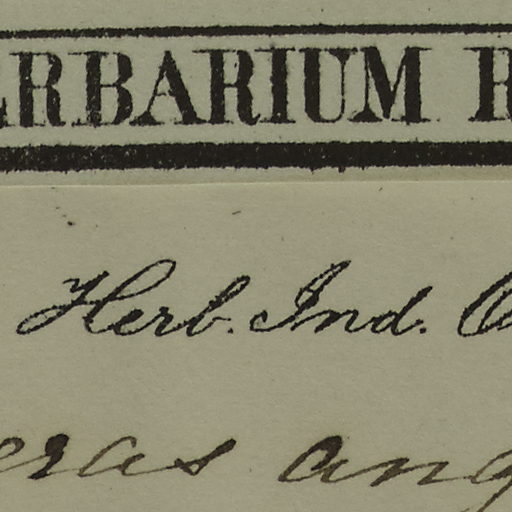 ERBARIUM R
Herb. Ind. O
eras ang